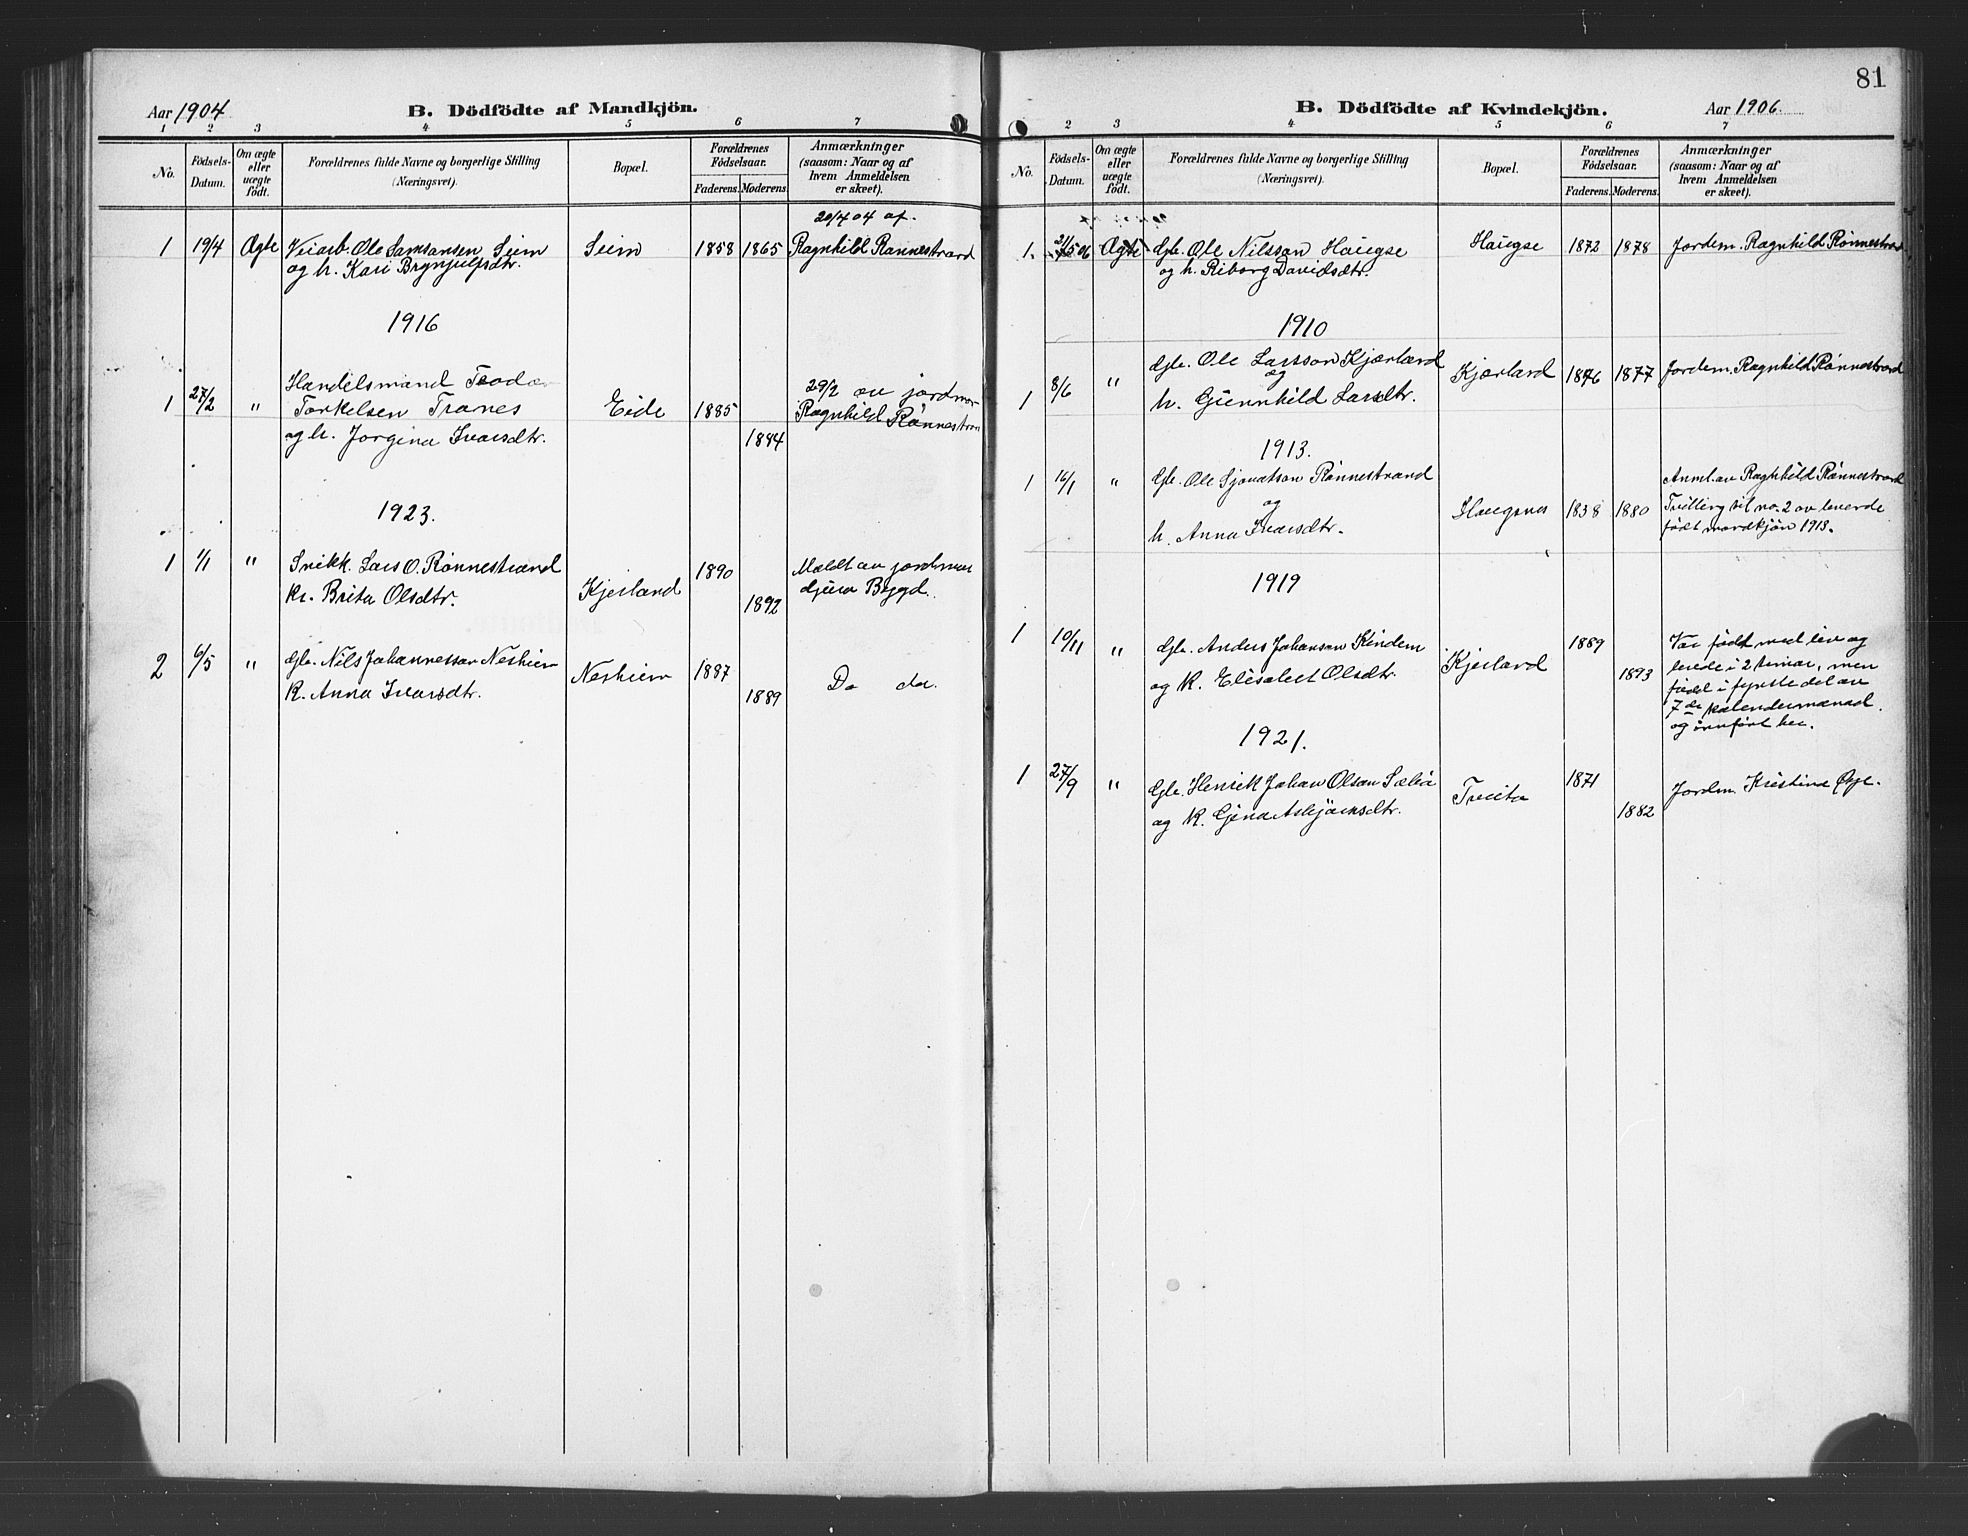 Aar 1904
B. Dödfödte af Mandkjön.
1 2 3 4 5 6 7
No.
Födsels-Datum.
Om ægte eller uægte födt.
Forældrenes fulde Navne og borgerlige Stilling (Næringsvei).
Bopæl.
Forældrenes Födselsaar.
Faderens. Moderens.
Anmærkninger (saasom: Naar og af hvem Anmeldelsen er skeet).
20/4 04 af.
1 19/4 Ægte Veiarb. Ole Samsonsen Seim Seim 1858 1865 Ragnhild Rønnestrand
og h. Kari Brynjulfsdtr.
1916
Handelsmand
1 27/2 " Torkelsen Tranes Eide 1885 29/2 av jordmor
Ragnhild Rønnestran
og h. Jorgina Ivarsdtr. 1884
1923.
1 1/1 " Snikk. Lars O. Rønnestrand 1890 Meldt av jordmor
k. Brita Olsdtr. Kjerland 1892 Bygd.
2 6/5 " Gbr. Nils Johannesson Neshiem Neshiem 1887
K. Anna Ivarsdtr. 1889 Do do.
81
B. Dödfödte af Kvindekjön.
Aar 1906.
2 3 4 5 6 7
No.
Födsels-Datum.
Om ægte eller uægte födt.
Forældrenes fulde Navne og borgerlige Stilling (Næringsvei).
Bopæl.
Forældrenes Födselsaar.
Faderens. Moderens.
Anmærkninger (saasom: Naar og af hvem Anmeldelsen er skeet).
1. Ægte Gbr. Ole Nilsson Haugse Haugse 1872 1878 Jordem. Ragnhild Rønnestrand
og h. Riborg Davidsdtr.
1910
Gbr. Ole Larsson Kjærland
og
1 8/6 " h. Gunnhild Larsdtr. Kjærland 1876 1877 Jordem. Ragnhild Rønnestrand
1913.
1 16/1 " Gbr. Ole Sjovatson Rønnestrand Anml. av Ragnhild Rønnestrand
og Haugsnes 1838 1880 Tvilling til no. 2 av levende
h. Anna Ivarsdtr. født mandkjön 1913.
1919
1 10/11 " Gbr. Anders Johanson Kindem 1889 Var født med liv og
og K. Elisabet Olsdtr. Kjerland 1893 levde i 2 timar, men
född i fyrste del av
7de kalendermanad
og innført her.
1921.
1 27/9 " Gbr. Henrik Johan Olson Sæbö Tveito 1871 Jordm. Kristina Øye.
og K. Gjena Asbjörnsdtr. 1882